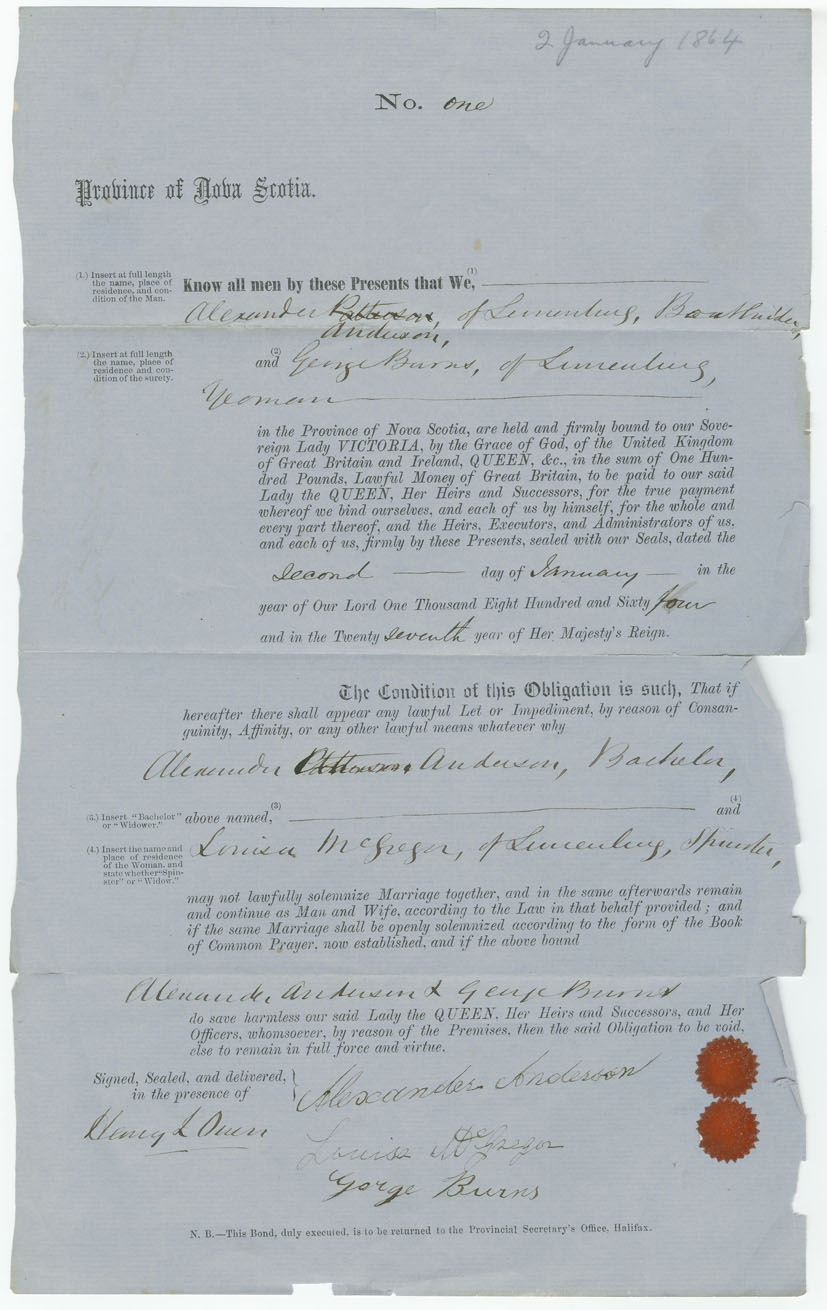 2 January 1864
No. one
Province of Nova Scotia.
(1.) Insert at full length
the name, place of
residence, and con-
dition of the Man.
Know all men by these Presents that We, (1)
Alexander Patterson, of Lunenburg, Boatbuilder,
Anderson,
(2.) Insert at full length
the name, place of
residence and con-
dition of the surety.
and (2) George Burns, of Lunenburg,
Yeoman
in the Province of Nova Scotia, are held and firmly bound to our Sove-
reign Lady VICTORIA, by the Grace of God, of the United Kingdom
of Great Britain and Ireland, QUEEN, &c., in the sum of One Hun-
dred Pounds, Lawful Money of Great Britain, to be paid to our said
Lady the QUEEN, Her Heirs and Successors, for the true payment
whereof we bind ourselves, and each of us by himself, for the whole and
every part thereof, and the Heirs, Executors, and Administrators of us,
and each of us, firmly by these Presents, sealed with our Seals, dated the
second day of January in the
year of Our Lord One Thousand Eight Hundred and Sixty four
and in the Twenty seventh year of Her Majesty's Reign.
The Condition of this Obligation is such, That if
hereafter there shall appear any lawful Let or Impediment, by reason of Consan-
guinity, Affinity, or any other lawful means whatever why
Alexander Patterson, Anderson, Bachelor,
(3.) Insert "Bachelor"
or "Widower."
above named, (3) and (4)
(4.) Insert the name and
place of residence
of the Woman, and
state whether "Spin-
ster" or "Widow."
Louisa McGregor, of Lunenburg, Spinster,
may not lawfully solemnize Marriage together, and in the same afterwards remain
and continue as Man and Wife, according to the Law in that behalf provided; and
if the same Marriage shall be openly solemnized according to the form of the Book
of Common Prayer, now established, and if the above bound
Alexander Anderson & George Burns
do save harmless our said Lady the QUEEN, Her Heirs and Successors, and Her
Officers, whomsoever, by reason of the Premises, then the said Obligation to be void,
else to remain in full force and virtue.
Signed, Sealed, and delivered,
in the presence of
Alexander Anderson
Henry L Owen
Louisa McGregor
Gorge Burns
N. B.—This Bond, duly executed, is to be returned to the Provincial Secretary's Office, Halifax.